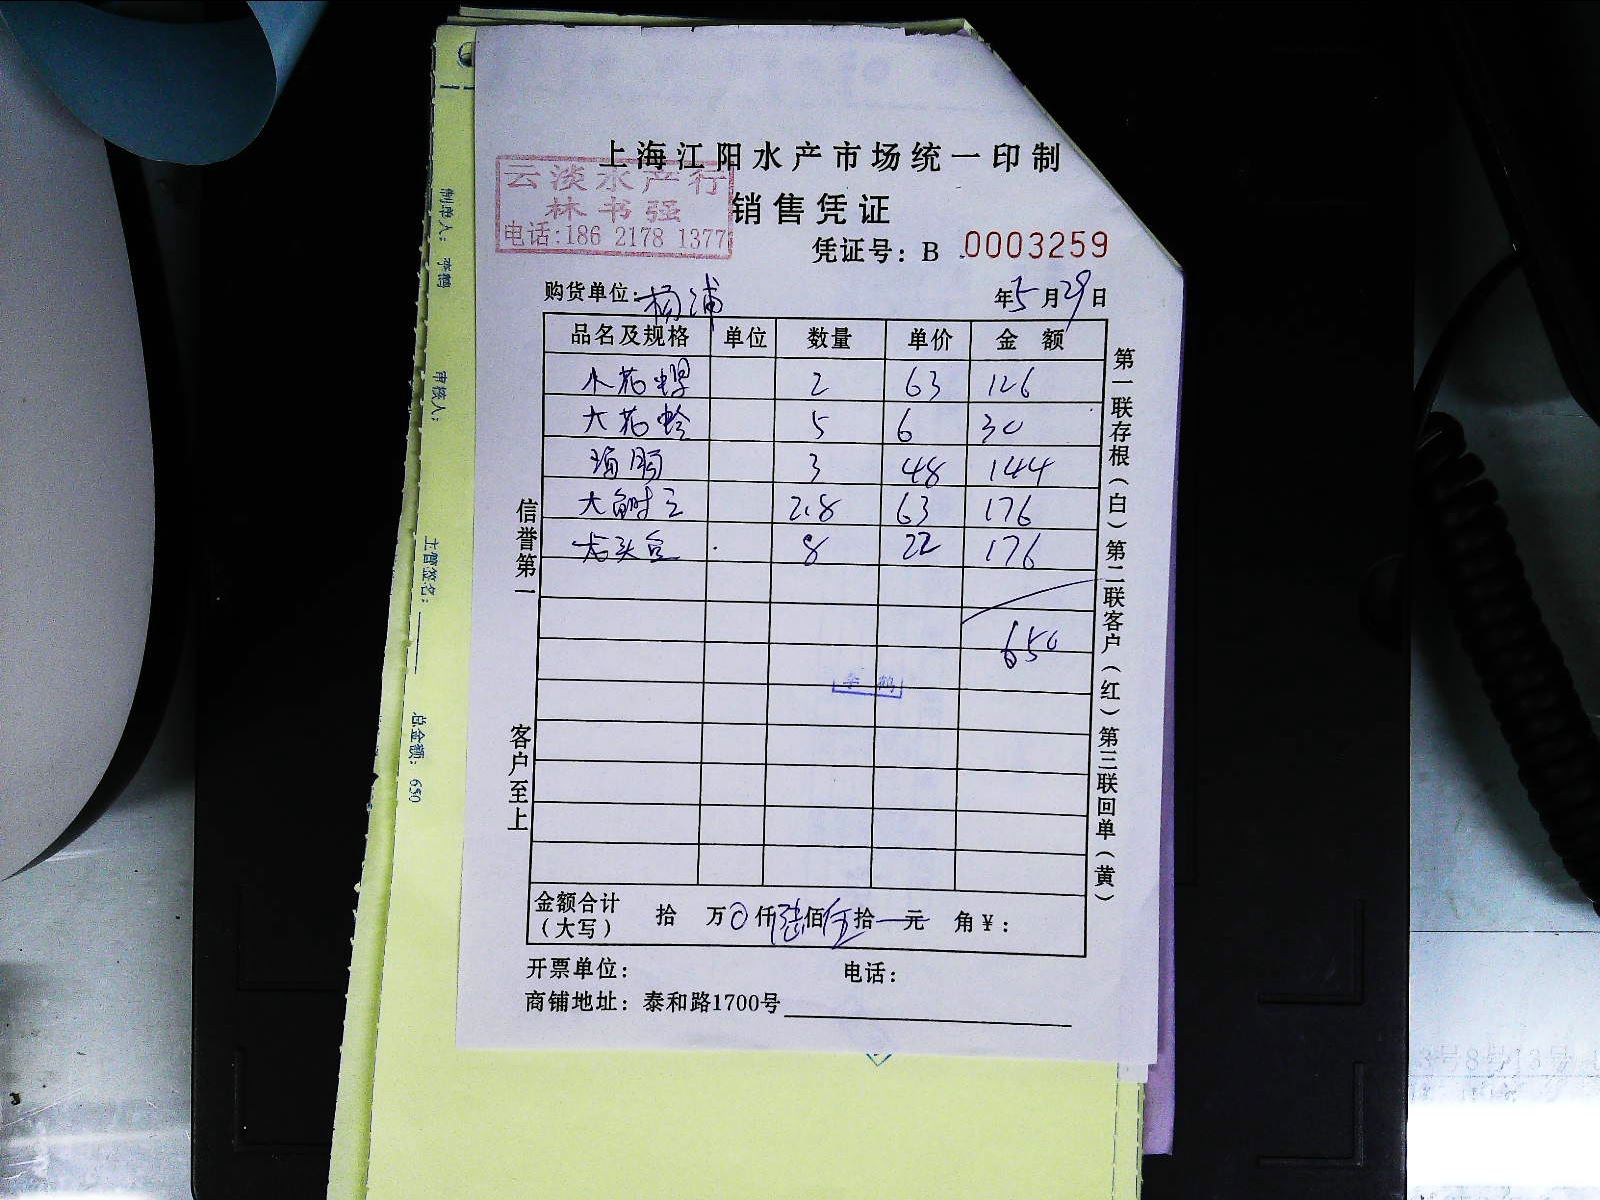 上海江阳水产市场统一印制
云淡水产行
林书强
电话:186 2178 1377
销售凭证
凭证号：B 0003259
购货单位：杨浦 年5月29日
品名及规格 单位 数量 单价 金 额
2 63 126
大花蛤 5 6 30
3 48 144
大 2.8 63 176
8 22 176
650
李鹤
金额合计（大写） 拾 万0仟陆佰伍拾 元 角￥：
开票单位： 电话：
商铺地址：泰和路1700号
信誉第一 客户至上
第一联存根（白）第二联客户（红）第三联回单（黄）
制单人：李鹤 审核人： 主管签名： 总金额：650